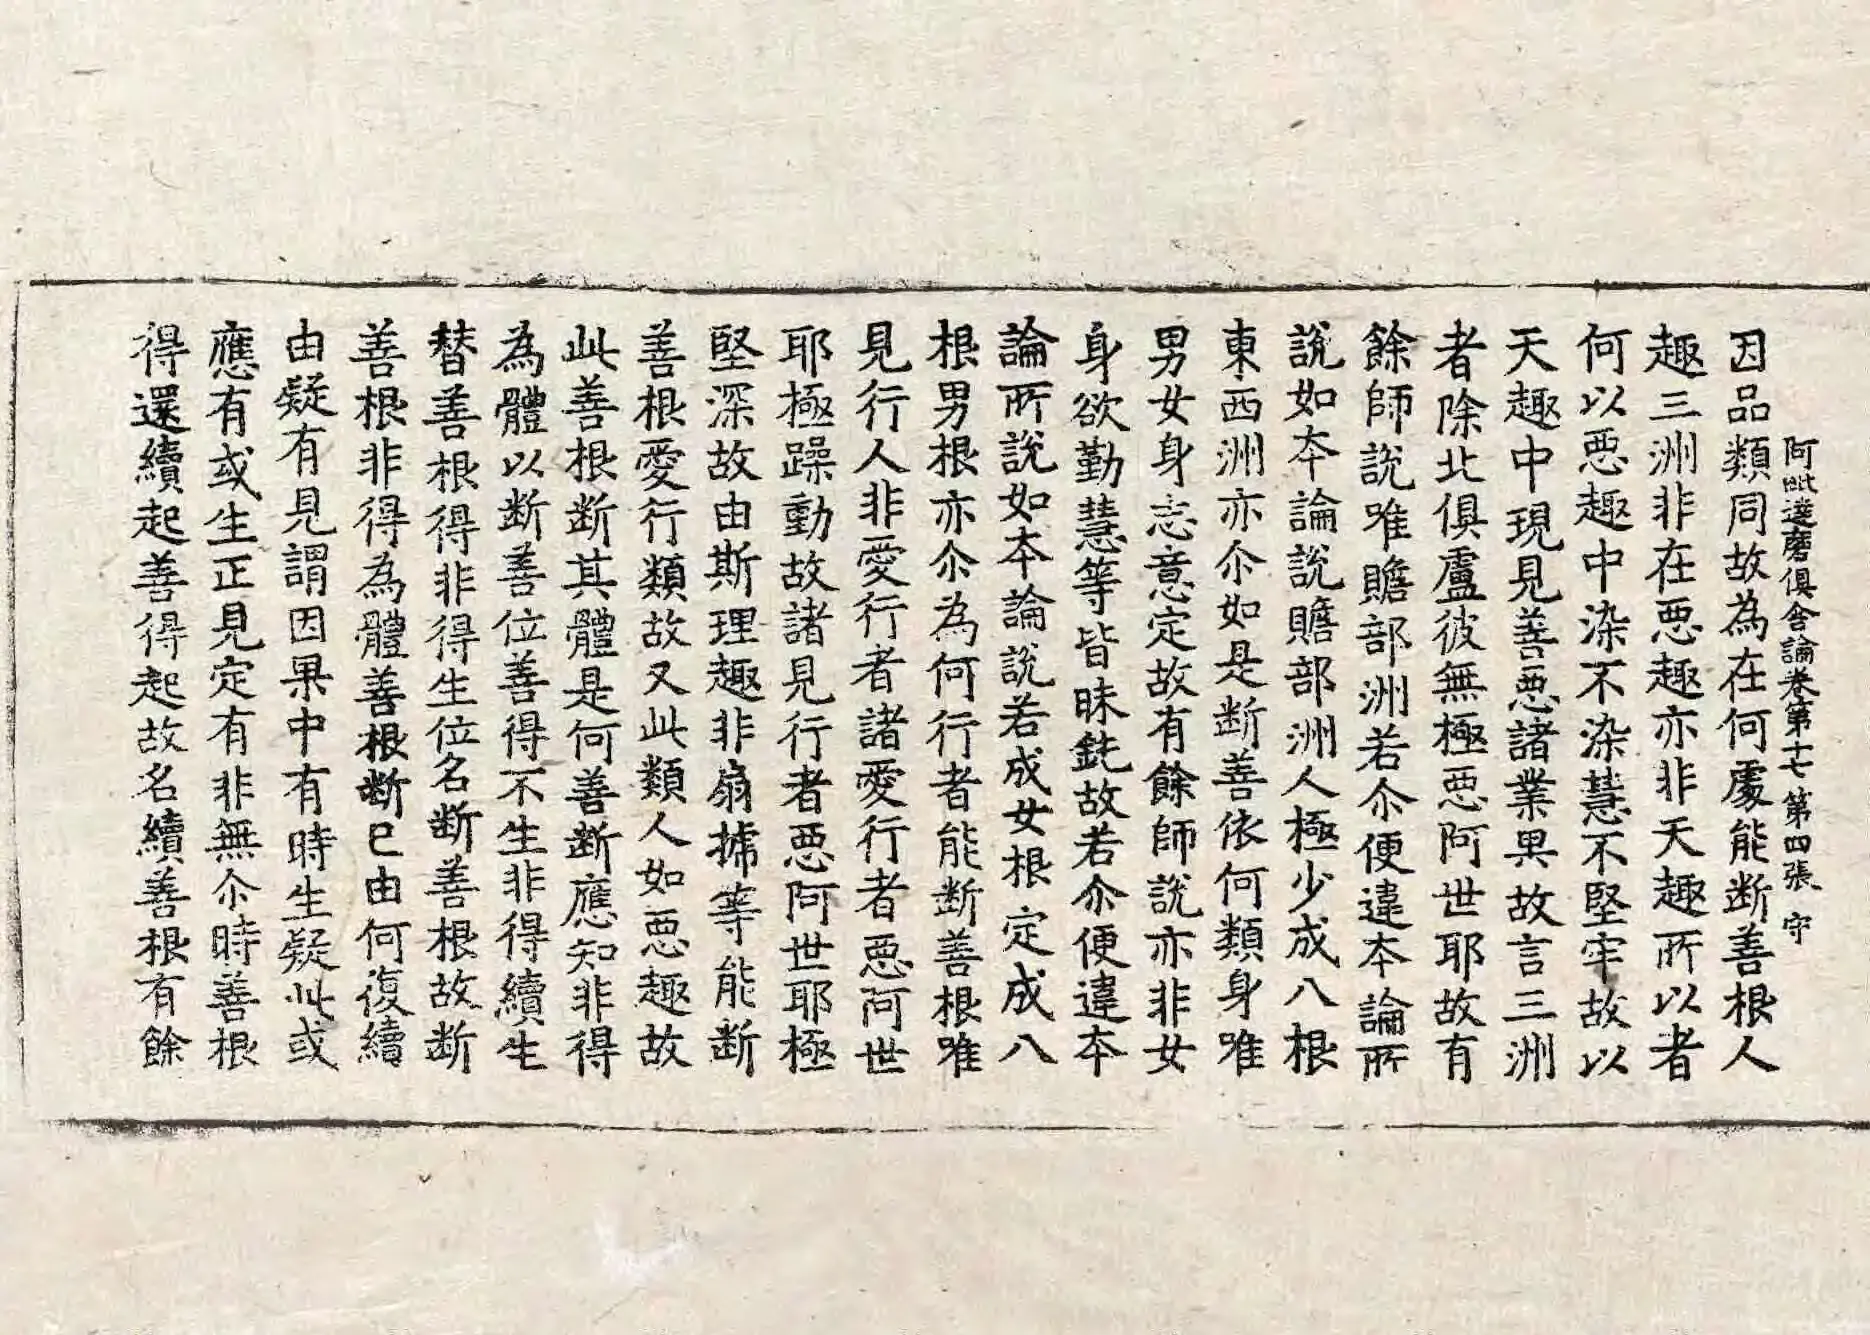 阿毗達磨俱舍論卷第十七 第四張 守
因品類同故為在何處能断善根人
趣三洲非在惡趣亦非天趣所以者
何以惡趣中染不染慧不堅牢故以
天趣中現見善惡諸業果故言三洲
者除北俱盧彼無極惡阿世耶故有
餘師說唯贍部洲若尒便違本論所
說如本論說贍部洲人極少成八根
東西洲亦尒如是断善依何類身唯
男女身志意定故有餘師說亦非女
身欲勤慧等皆昧鈍故若尒便違本
論所說如本論說若成女根定成八
根男根亦尒為何行者能断善根唯
見行人非愛行者諸愛行者惡阿世
耶極躁動故諸見行者惡阿世耶極
堅深故由斯理趣非扇搋等能断
善根愛行類故又此類人如惡趣故
此善根断其體是何善断應知非得
為體以断善位善得不生非得續生
替善根得非得生位名断善根故断
善根非得為體善根断已由何復續
由疑有見謂因果中有時生疑此或
應有或生正見定有非無尒時善根
得還續起善得起故名續善根有餘